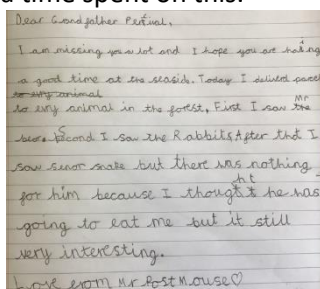 a time spent on this.
Dear Grandfather Pertual,
I am missing you lot and I hope you are having
a good time at the seaside. Today I deliverd parcel
to evry animal
to evry animal in the forest, First I saw the Mr
bear Second I saw the Rabbits After tht I
saw senor snake but there was nothing
for him because I thought he was
going to eat me but it still
very interesting.
Love from Mr Post Mouse♡